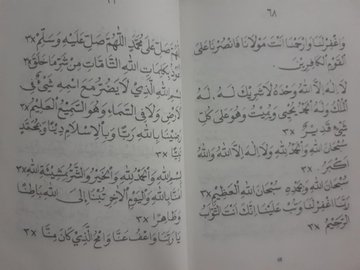 ٦٨
وَاغْفِرْ لَنَا وَارْحَمْنَا اَنْتَ مَوْلَانَا فَانْصُرْنَا عَلَى
الْقَوْمِ الْكَافِرِيْنَ.
لَا اِلٰهَ اِلَّا اللهُ وَحْدَهُ لَا شَرِيْكَ لَهُ ، لَهُ
الْمُلْكُ وَلَهُ الْحَمْدُ يُحْيِيْ وَيُمِيْتُ وَهُوَ عَلَى كُلِّ
شَيْءٍ قَدِيْرٌ ٣x
سُبْحَانَ اللهِ وَالْحَمْدُ لِلّٰهِ وَلَا اِلٰهَ اِلَّا اللهُ وَاللهُ
اَكْبَرُ . ٣x
سُبْحَانَ اللهِ وَبِحَمْدِهِ سُبْحَانَ اللهِ الْعَظِيْمِ ٣x
رَبَّنَا اغْفِرْ لَنَا وَتُبْ عَلَيْنَا اِنَّكَ اَنْتَ التَّوَّابُ
الرَّحِيْمُ ٣x
اللّٰهُمَّ صَلِّ عَلَى مُحَمَّدٍ اَللّٰهُمَّ صَلِّ عَلَيْهِ وَسَلِّمْ ٣x
بِكَلِمَاتِ اللهِ التَّامَّاتِ مِنْ شَرِّ مَا خَلَقَ ٣x
اللهِ الَّذِيْ لَا يَضُرُّ مَعَ اسْمِهِ شَيْءٌ فِي
الْاَرْضِ وَلَا فِي السَّمَاءِ وَهُوَ السَّمِيْعُ الْعَلِيْمُ ٣x
رَضِيْنَا بِاللهِ رَبًّا وَبِالْاِسْلَامِ دِيْنًا وَبِمُحَمَّدٍ
نَبِيًّا ٣x
بِسْمِ اللهِ وَالْحَمْدُ لِلّٰهِ وَالْخَيْرُ وَالشَّرُّ بِمَشِيْئَةِ اللهِ ٣x
اٰمَنَّا بِاللهِ وَالْيَوْمِ الْاٰخِرِ تُبْنَا اِلَى اللهِ بَاطِنًا
وَظَاهِرًا ٣x
يَا رَبَّنَا وَاعْفُ عَنَّا وَامْحُ الَّذِيْ كَانَ مِنَّا ٣x